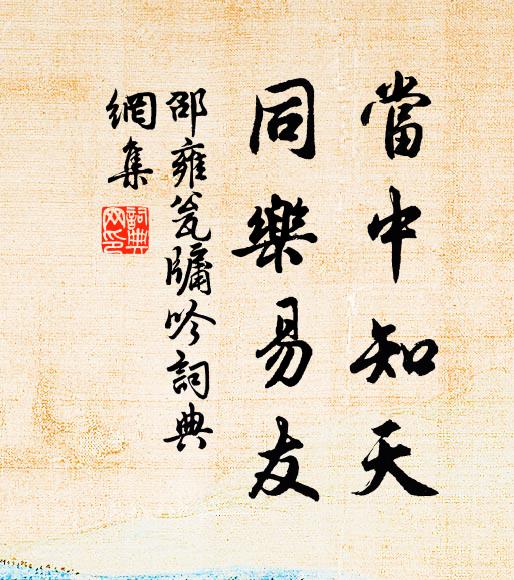 當中知天
同樂易友
邵雍瓮牖吟詞典
網集
詞典
网印